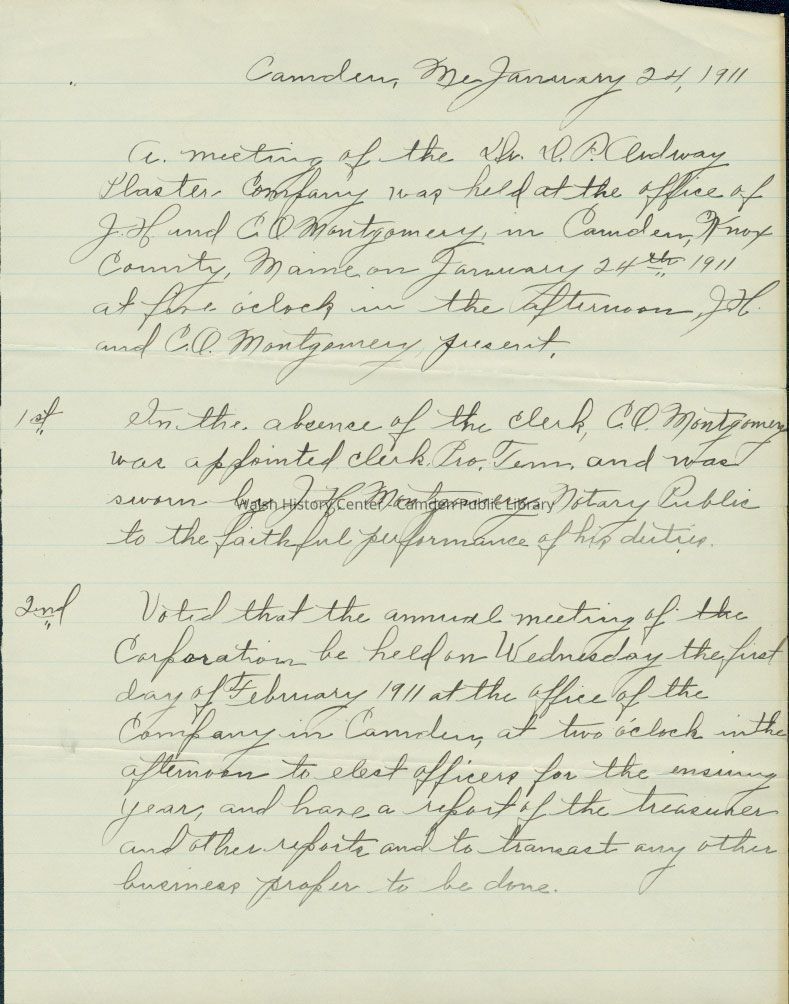 Camden, Me January 24, 1911
A meeting of the Dr. D. P. Ordway
Plaster Company was held at the office of
J. H. and C. O. Montgomery, in Camden, Knox
County, Maine on January 24th 1911
at five o'clock in the afternoon, J. H.
and C. O. Montgomery present.
1st In the absence of the clerk, C. O. Montgomery
was appointed clerk Pro. Tem. and was
sworn by J. H. Montgomery Notary Public
Walsh History Center - Camden Public Library
to the faithful performance of his duties.
2nd Voted that the annual meeting of the
Corporation be held on Wednesday the first
day of February 1911 at the office of the
Company in Camden, at two o'clock in the
afternoon to elect officers for the ensuing
year, and have a report of the treasurer
and other reports and to transact any other
business proper to be done.